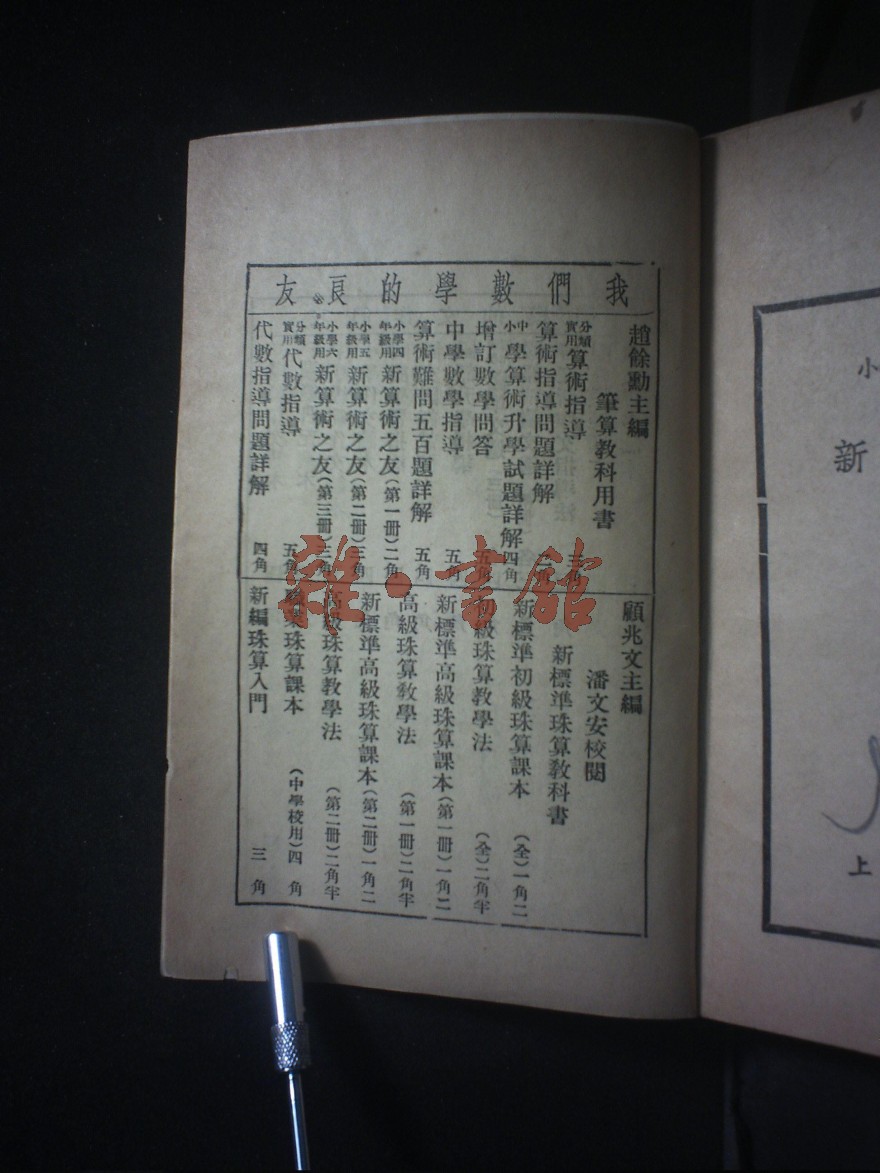 我們數學的良友
趙餘勳主編
筆算教科用書
分類實用算術指導 三角
算術指導問題詳解
中小學算術升學試題詳解 四角
增訂數學問答 五角
中學數學指導 五角
算術難問五百題詳解 五角
小學四年級用新算術之友(第一冊)二角
小學五年級用新算術之友(第二冊)三角
小學六年級用新算術之友(第三冊)三角
分類實用代數指導 五角
代數指導問題詳解 四角
顧兆文主編
潘文安校閱
新標準珠算教科書
新標準初級珠算課本 (全)一角二
初級珠算教學法 (全)二角半
新標準高級珠算課本(第一冊)一角二
高級珠算教學法 (第一冊)二角半
新標準高級珠算課本(第二冊)一角二
高級珠算教學法 (第二冊)二角半
職業珠算課本 (中學校用)四角
新編珠算入門 三角
雜·書館
小
新
上